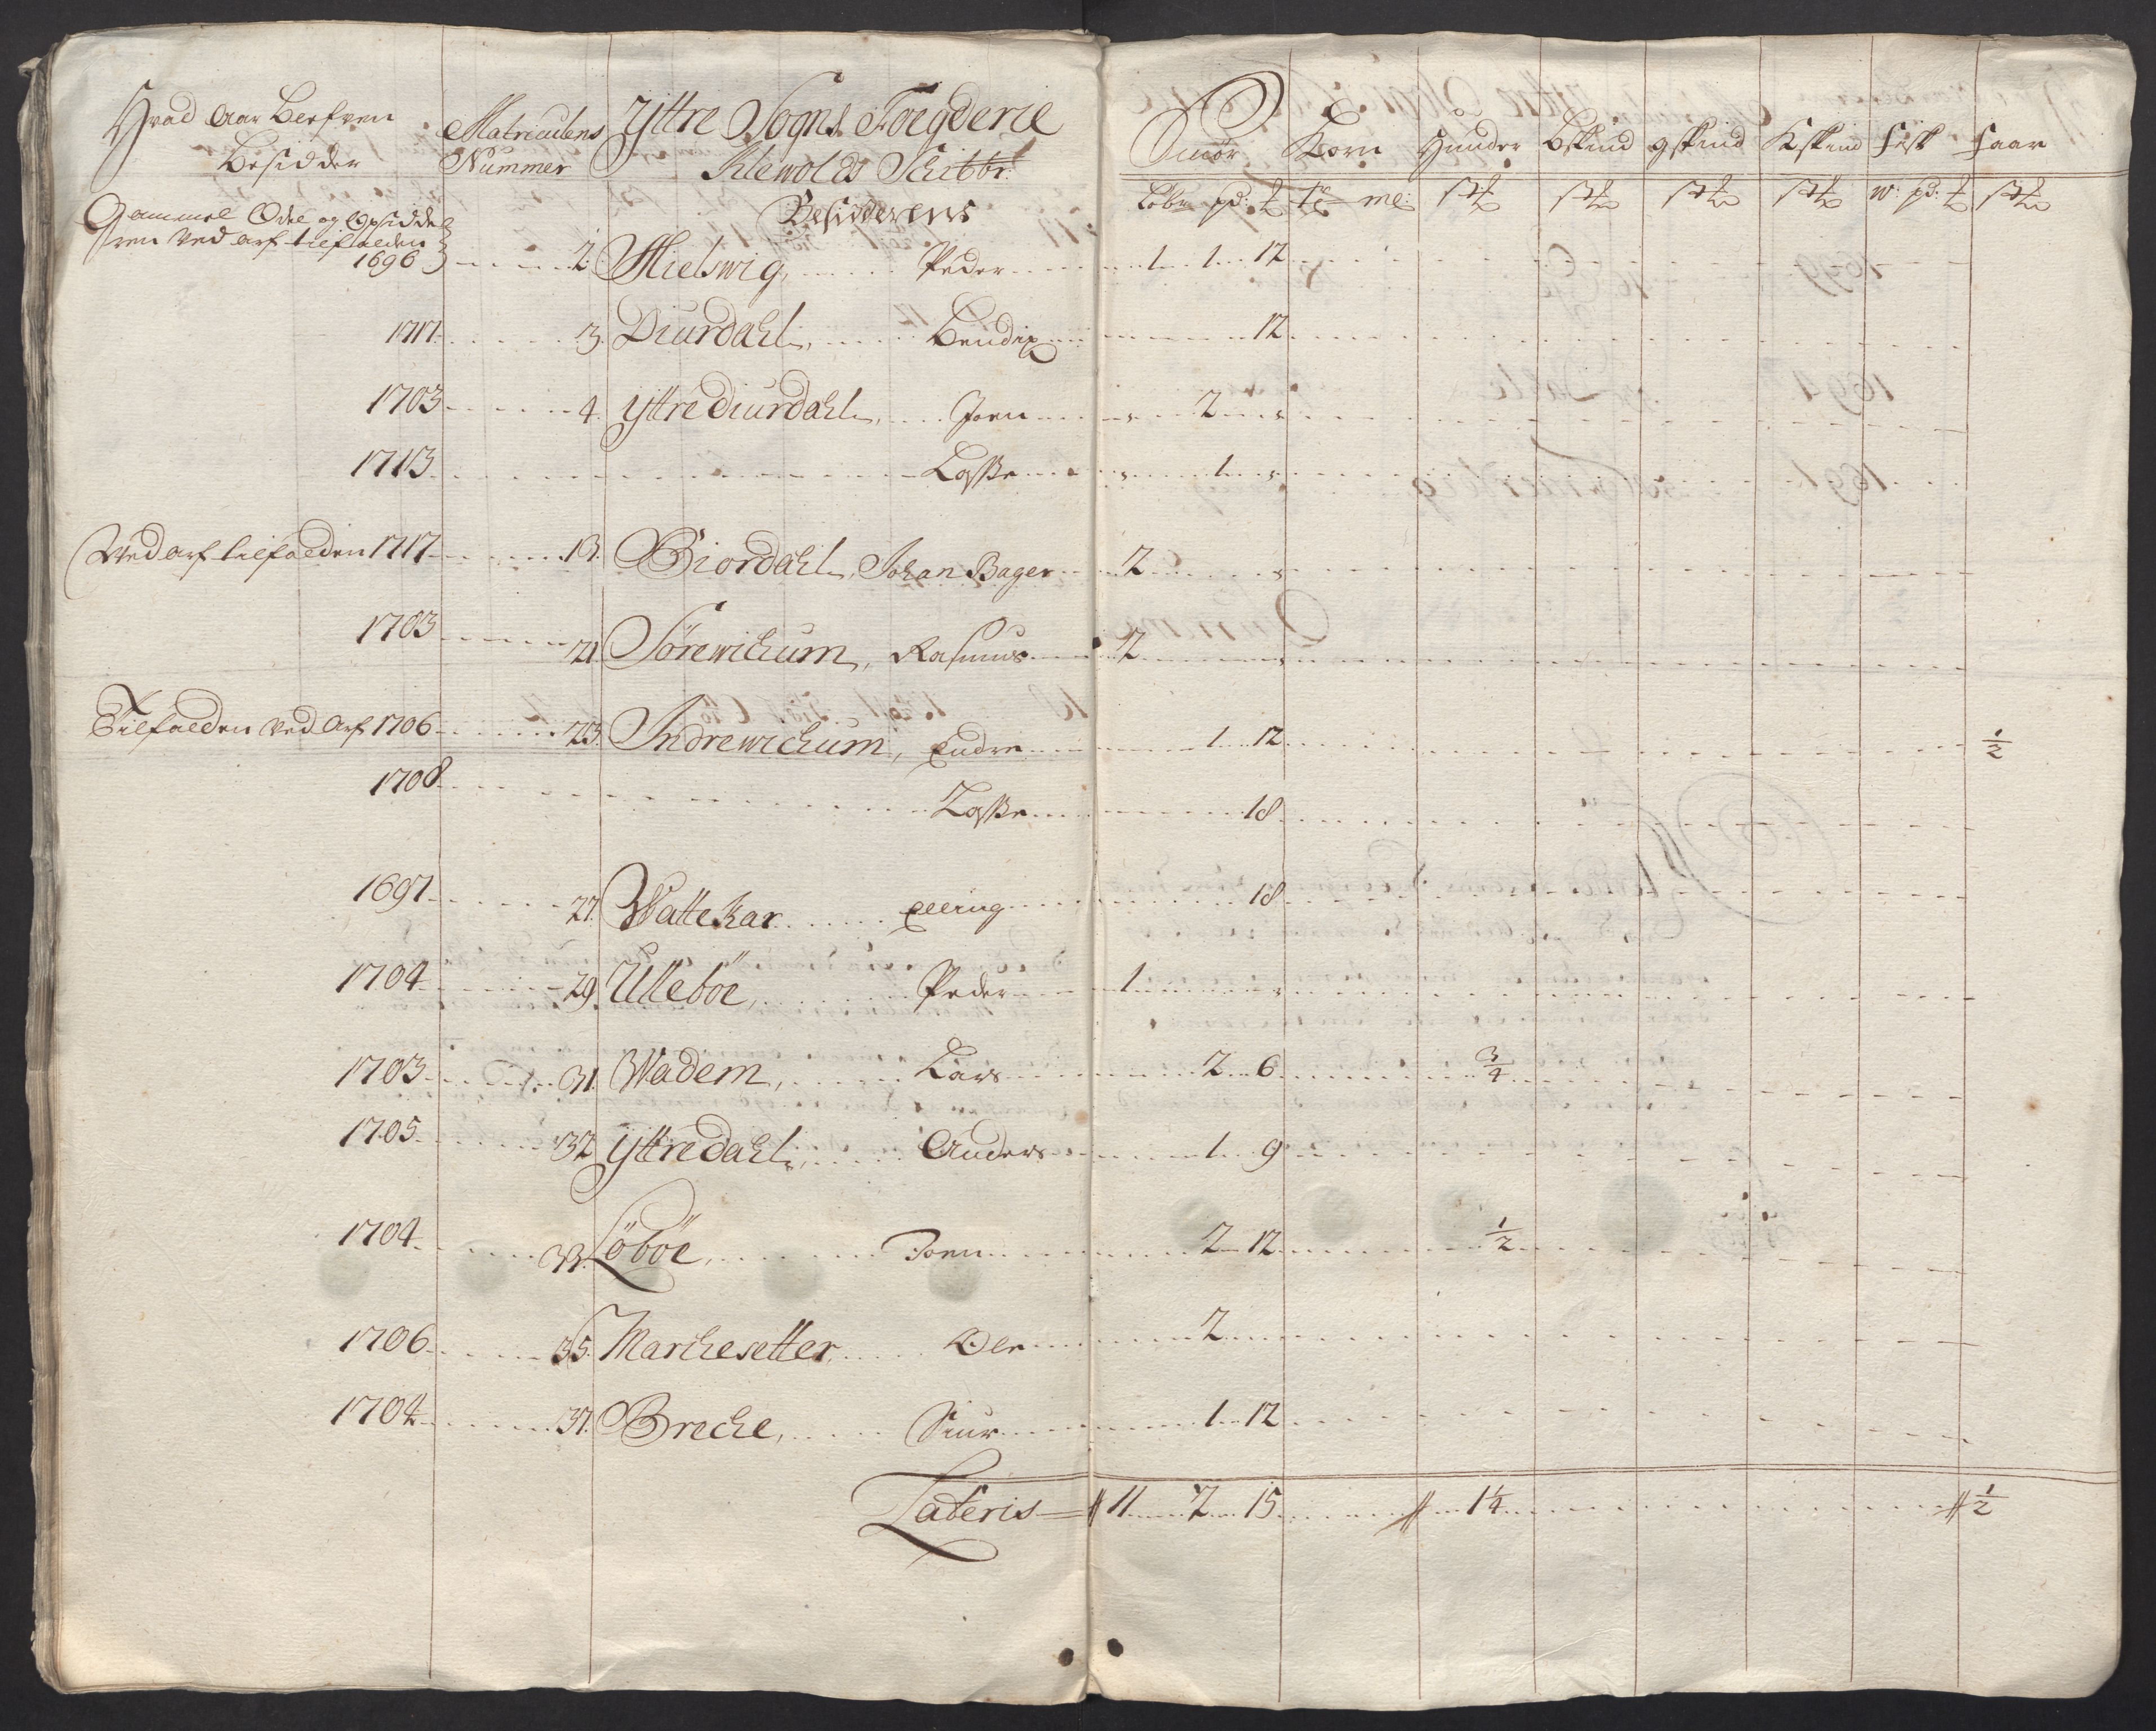 Hvad Aar Blefven Besidder | Matriculens Nummer | Yttre Sogns Foegderie Klewolds Schibbr: Besidderens | Smör Löber pd: | Korn tr mr: | Huuder | Bskind | gskind | Kskind | Fisk w: pd: | Faar
Gammel Odel og Opsidde
ren ved arf tilfalden
1696 2. Mielswig, Peder 1 1 12
1717 3. Diurdahl, Bendix 12
1703 4. Yttre Diurdahl, Joen 2
1713 Lasse 1
Ved arf tilfalden 1717 13. Biordahl, Johan Bager 2
1703 21 Sörewichum, Rasmus 2
Tilfalden ved Arf 1706 23. Indrewichum, Endre 1 12 ½
1708 Lasse 18
1697 27. Wattekar Elling 18
1704 29. Ulleböe, Peder 1
1703 31. Wadem, Lars 2 6 ¾
1705 32 Yttredahl, Anders 1 9
1704 33. Löböe, Joen 2 12 ½
1706 35. Marchesetter, Ole 2
1704 37. Breche, Siur 1 12
Lateris 11 2 15 1¼ ½